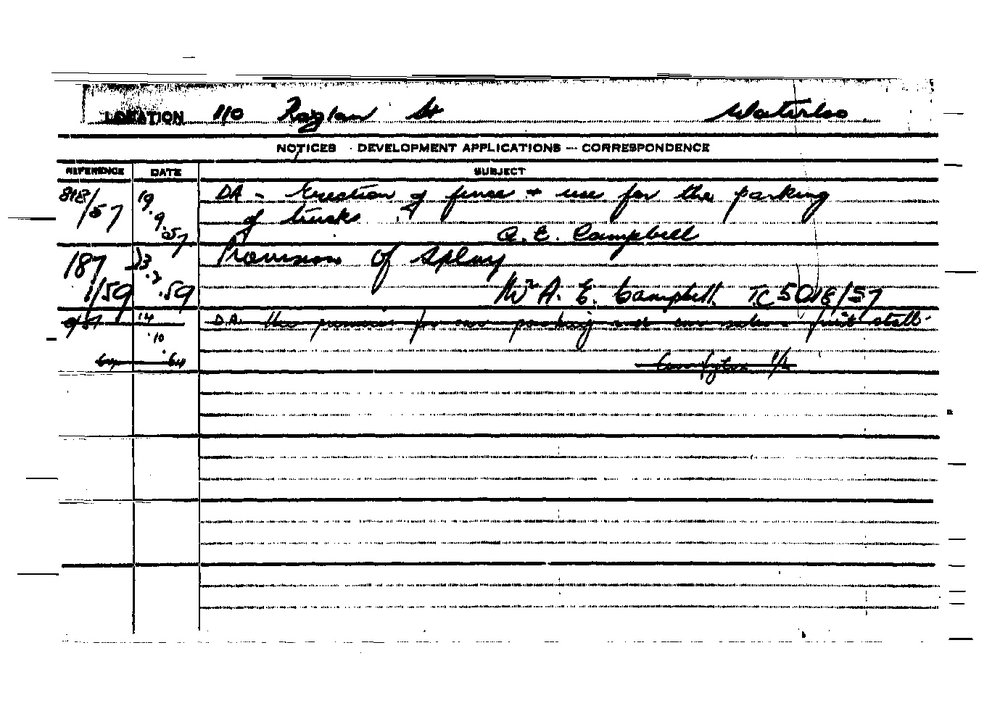 LOCATION 110 Raglan St Waterloo
NOTICES - DEVELOPMENT APPLICATIONS - CORRESPONDENCE
REFERENCE DATE SUBJECT
818/57 19.9.57 DA - Erection of fence + use for the parking
of trucks.
A. E. Campbell
187/59 23.2.59 Provision of Splay
Mr A. E. Campbell TC 5018/57
14.10.64 D.A. Use premises for car parking and fruit stall.